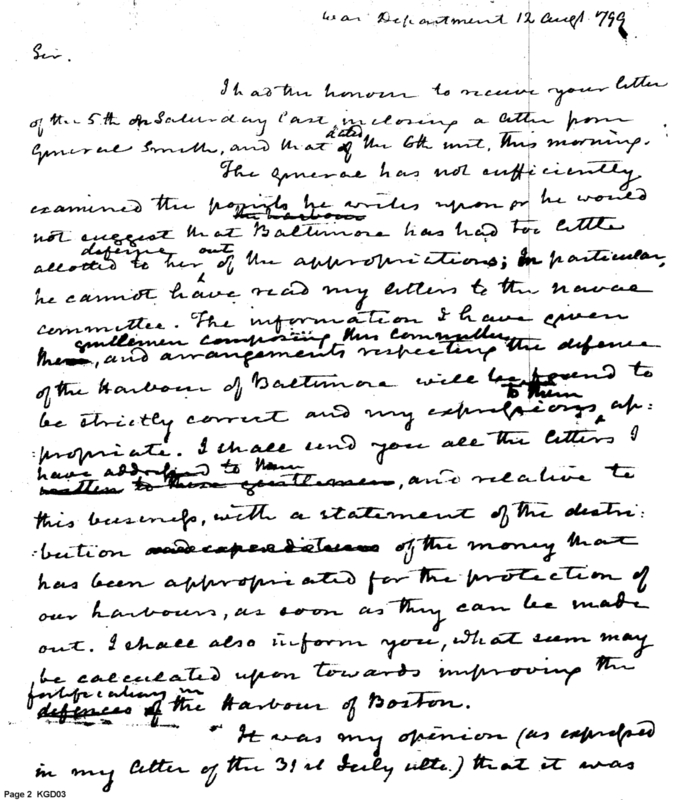 War Department 12 augt. 799
Sir.
I had the honour to receive your letter
of the 5th on Saturday last, inclosing a letter from
dated
General Smith, and that of the 6th inst, this morning.
The general has not sufficiently
examined the points he writes upon or he would
the harbour
not suggest that Baltimore has had too little
defence out
allotted to her of the appropriations; In particular,
he cannot have read my letters to the naval
committee. The information I have given
gentlemen composing this committee
them, and arrangements respecting the defence
of the Harbour of Baltimore will be found to
to them
be strictly correct and my expressions ap:
:propriate. I shall send you all the letters I
have addressed to them
written to these gentlemen, and relative to
this business, with a statement of the distri:
:bution and expenditures of the money that
has been appropriated for the protection of
our harbours, as soon as they can be made
out. I shall also inform you, what sum may
be calculated upon towards improving the
fortifications in
defences of the Harbour of Boston.
It was my opinion (as expressed
in my letter of the 31st July ulto.) that it was
Page 2 KGD03